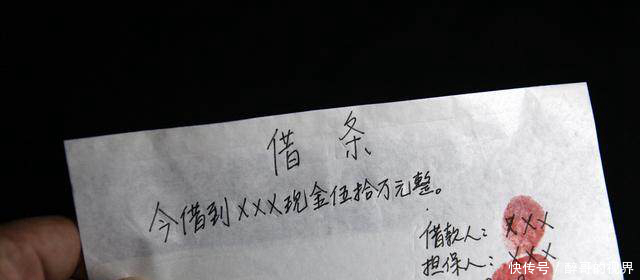 借条
今借到XXX现金伍拾万元整。
借款人：XXX
担保人：XXX
快传号/辞哥的视界